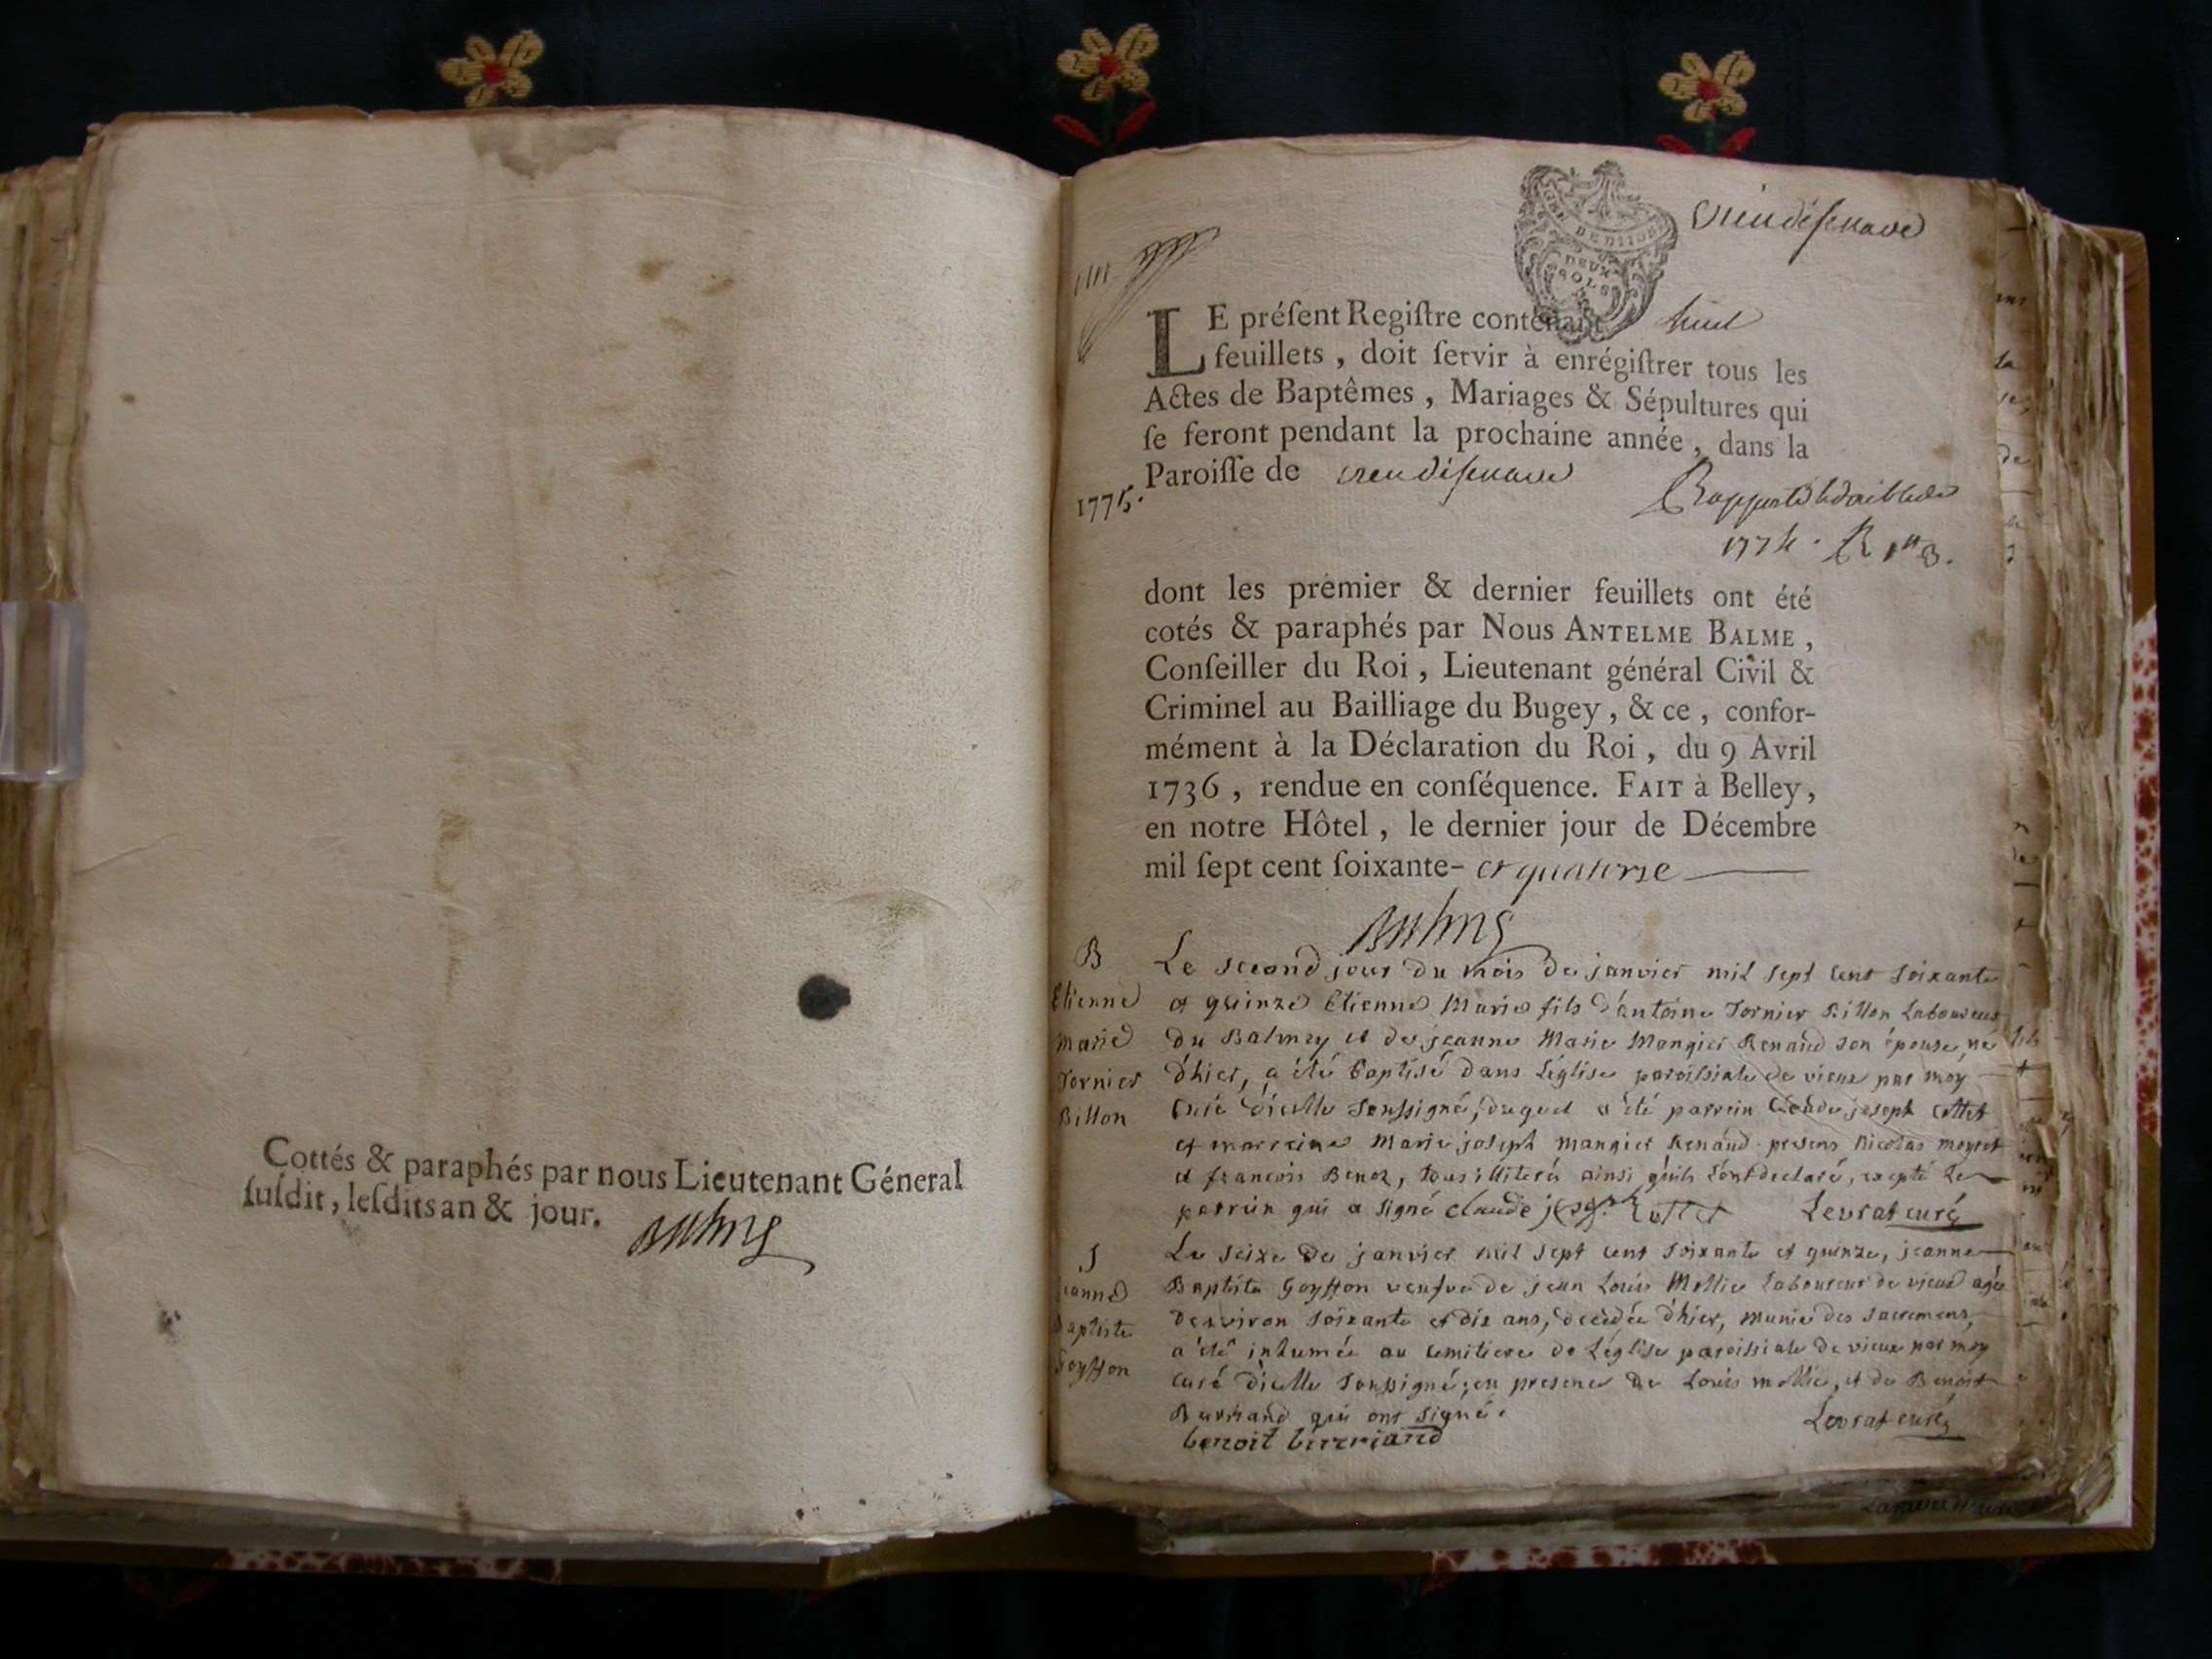 Cottés & paraphés par nous Lieutenant Géneral
ſuſdit, leſdits an & jour.
DEUX
SOLS
huit
LE préſent Regiſtre contenant
feuillets, doit ſervir à enrégiſtrer tous les
Actes de Baptêmes, Mariages & Sépultures qui
ſe feront pendant la prochaine année, dans la
Paroiſſe de
1775.
1774.
dont les prémier & dernier feuillets ont été
cotés & paraphés par Nous ANTELME BALME,
Conſeiller du Roi, Lieutenant général Civil &
Criminel au Bailliage du Bugey, & ce, confor-
mément à la Déclaration du Roi, du 9 Avril
1736, rendue en conſéquence. FAIT à Belley,
en notre Hôtel, le dernier jour de Décembre
mil ſept cent ſoixante- et quatorze
B
Etienne
Marie
Tornier
Billon
Le second jour du mois de janvier mil sept cent soixante
et quinze Etienne Marie fils d'antoine Tornier Billon Laboureur
du Balmey et de jeanne Marie Mangier Renaud son épouse, né
d'hier, a été baptisé dans L'église paroissiale de vieux par moy
Curé d'icelle soussigné, duquel a été parrein Claude joseph Cottet
et marreine Marie joseph mangier Renaud presens Nicolas meynet
et françois Benoz, tous illiterés ainsi qu'ils l'ont declaré, excepté Le
parrein qui a signé claude joseph Cottet Levrat curé
S
jeanne
Baptiste
Goyffon
Le seize de janvier mil sept cent soixante et quinze, jeanne
Baptiste Goyffon veufve de jean Louis Mollie Laboureur de vieux agée
d'environ soixante et dix ans, decedée d'hier, munie des sacremens,
a été inhumée au cemitiere de L'église paroissiale de vieux par moy
curé d'icelle soussigné; en presence de Louis mollie, et de Benoit
Burriand qui ont signé.
benoit birriand Levrat curé